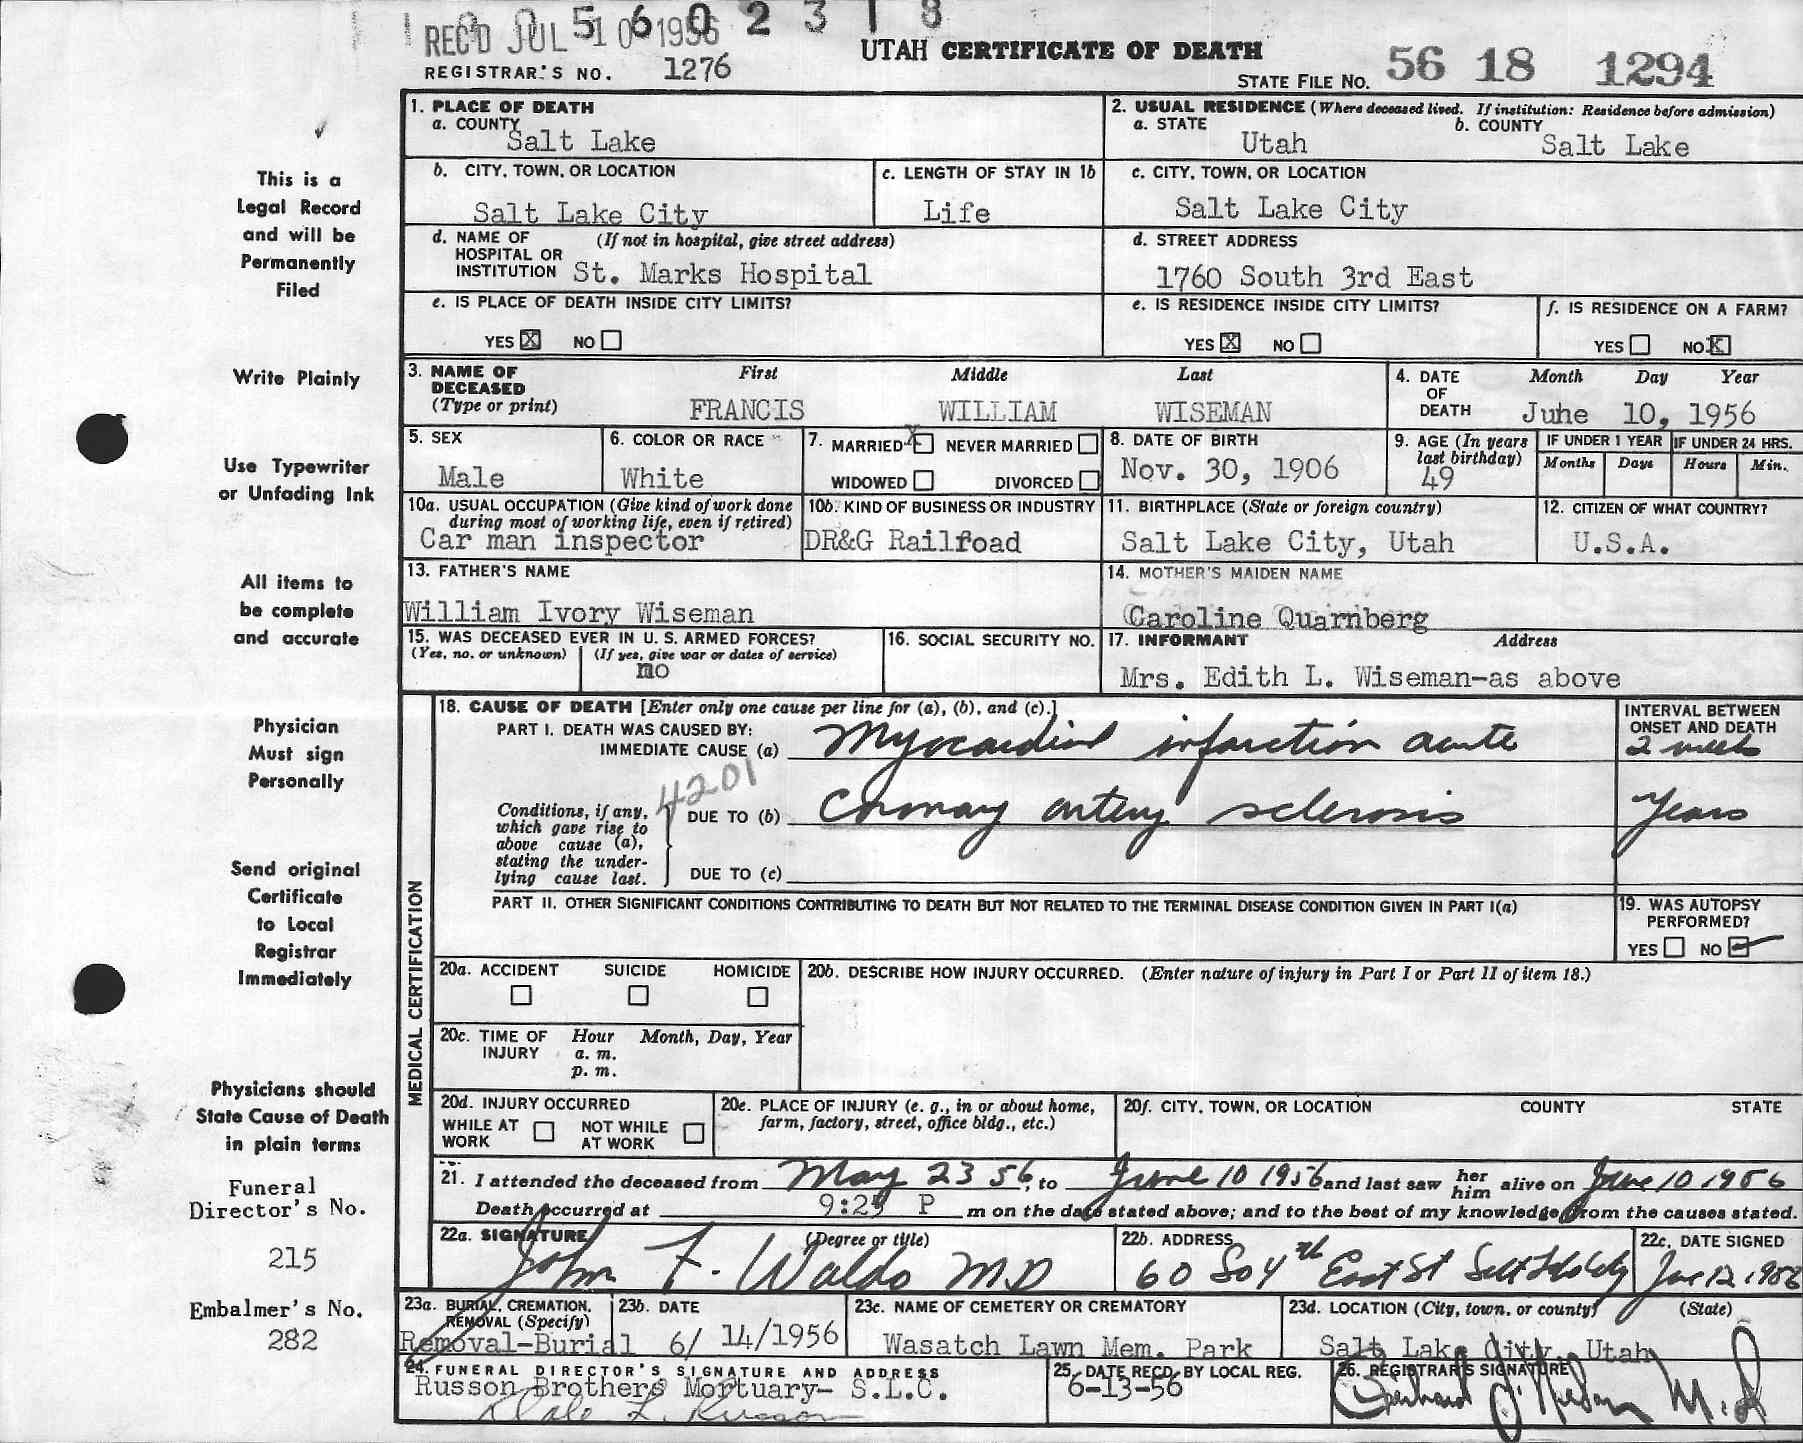 REC'D JUL 10 1956
5 6 0 2 3 1 8
UTAH CERTIFICATE OF DEATH
REGISTRAR'S NO. 1276
STATE FILE NO. 56 18 1294
This is a
Legal Record
and will be
Permanently
Filed
Write Plainly
Use Typewriter
or Unfading Ink
All items to
be complete
and accurate
Physician
Must sign
Personally
Send original
Certificate
to Local
Registrar
Immediately
Physicians should
State Cause of Death
in plain terms
Funeral
Director's No.
215
Embalmer's No.
282
1. PLACE OF DEATH
a. COUNTY
Salt Lake
2. USUAL RESIDENCE (Where deceased lived. If institution: Residence before admission)
a. STATE Utah b. COUNTY Salt Lake
b. CITY, TOWN, OR LOCATION
Salt Lake City
c. LENGTH OF STAY IN 1b
Life
c. CITY, TOWN, OR LOCATION
Salt Lake City
d. NAME OF (If not in hospital, give street address)
HOSPITAL OR
INSTITUTION St. Marks Hospital
d. STREET ADDRESS
1760 South 3rd East
e. IS PLACE OF DEATH INSIDE CITY LIMITS?
YES X NO
e. IS RESIDENCE INSIDE CITY LIMITS?
YES X NO
f. IS RESIDENCE ON A FARM?
YES NO X
3. NAME OF
DECEASED
(Type or print)
First Middle Last
FRANCIS WILLIAM WISEMAN
4. DATE
OF
DEATH
Month Day Year
June 10, 1956
5. SEX
Male
6. COLOR OR RACE
White
7. MARRIED X NEVER MARRIED
WIDOWED DIVORCED
8. DATE OF BIRTH
Nov. 30, 1906
9. AGE (In years
last birthday)
49
IF UNDER 1 YEAR IF UNDER 24 HRS.
Months Days Hours Min.
10a. USUAL OCCUPATION (Give kind of work done
during most of working life, even if retired)
Car man inspector
10b. KIND OF BUSINESS OR INDUSTRY
DR&G Railroad
11. BIRTHPLACE (State or foreign country)
Salt Lake City, Utah
12. CITIZEN OF WHAT COUNTRY?
U.S.A.
13. FATHER'S NAME
William Ivory Wiseman
14. MOTHER'S MAIDEN NAME
Caroline Quarnberg
15. WAS DECEASED EVER IN U. S. ARMED FORCES?
(Yes, no, or unknown) (If yes, give war or dates of service)
no
16. SOCIAL SECURITY NO.
17. INFORMANT Address
Mrs. Edith L. Wiseman-as above
MEDICAL CERTIFICATION
18. CAUSE OF DEATH [Enter only one cause per line for (a), (b), and (c).]
PART I. DEATH WAS CAUSED BY:
IMMEDIATE CAUSE (a) Myocardial infarction acute
INTERVAL BETWEEN
ONSET AND DEATH
2 weeks
4201
Conditions, if any,
which gave rise to
above cause (a),
stating the under-
lying cause last.
DUE TO (b) Coronary artery sclerosis Years
DUE TO (c)
PART II. OTHER SIGNIFICANT CONDITIONS CONTRIBUTING TO DEATH BUT NOT RELATED TO THE TERMINAL DISEASE CONDITION GIVEN IN PART I(a)
19. WAS AUTOPSY
PERFORMED?
YES NO
20a. ACCIDENT SUICIDE HOMICIDE
20b. DESCRIBE HOW INJURY OCCURRED. (Enter nature of injury in Part I or Part II of item 18.)
20c. TIME OF Hour Month, Day, Year
INJURY a. m.
p. m.
20d. INJURY OCCURRED
WHILE AT WORK NOT WHILE AT WORK
20e. PLACE OF INJURY (e. g., in or about home,
farm, factory, street, office bldg., etc.)
20f. CITY, TOWN, OR LOCATION COUNTY STATE
21. I attended the deceased from May 23 56, to June 10 1956 and last saw her him alive on June 10 1956
Death occurred at 9:25 P m on the date stated above; and to the best of my knowledge, from the causes stated.
22a. SIGNATURE (Degree or title)
John F. Waldo MD
22b. ADDRESS
60 So 4th East St Salt Lake City
22c. DATE SIGNED
June 12, 1956
23a. BURIAL, CREMATION,
REMOVAL (Specify)
Removal-Burial
23b. DATE
6/ 14/1956
23c. NAME OF CEMETERY OR CREMATORY
Wasatch Lawn Mem. Park
23d. LOCATION (City, town, or county) (State)
Salt Lake City, Utah
24. FUNERAL DIRECTOR'S SIGNATURE AND ADDRESS
Russon Brothers Mortuary- S.L.C.
Dale L. Russon
25. DATE RECD. BY LOCAL REG.
6-13-56
26. REGISTRAR'S SIGNATURE
M.D